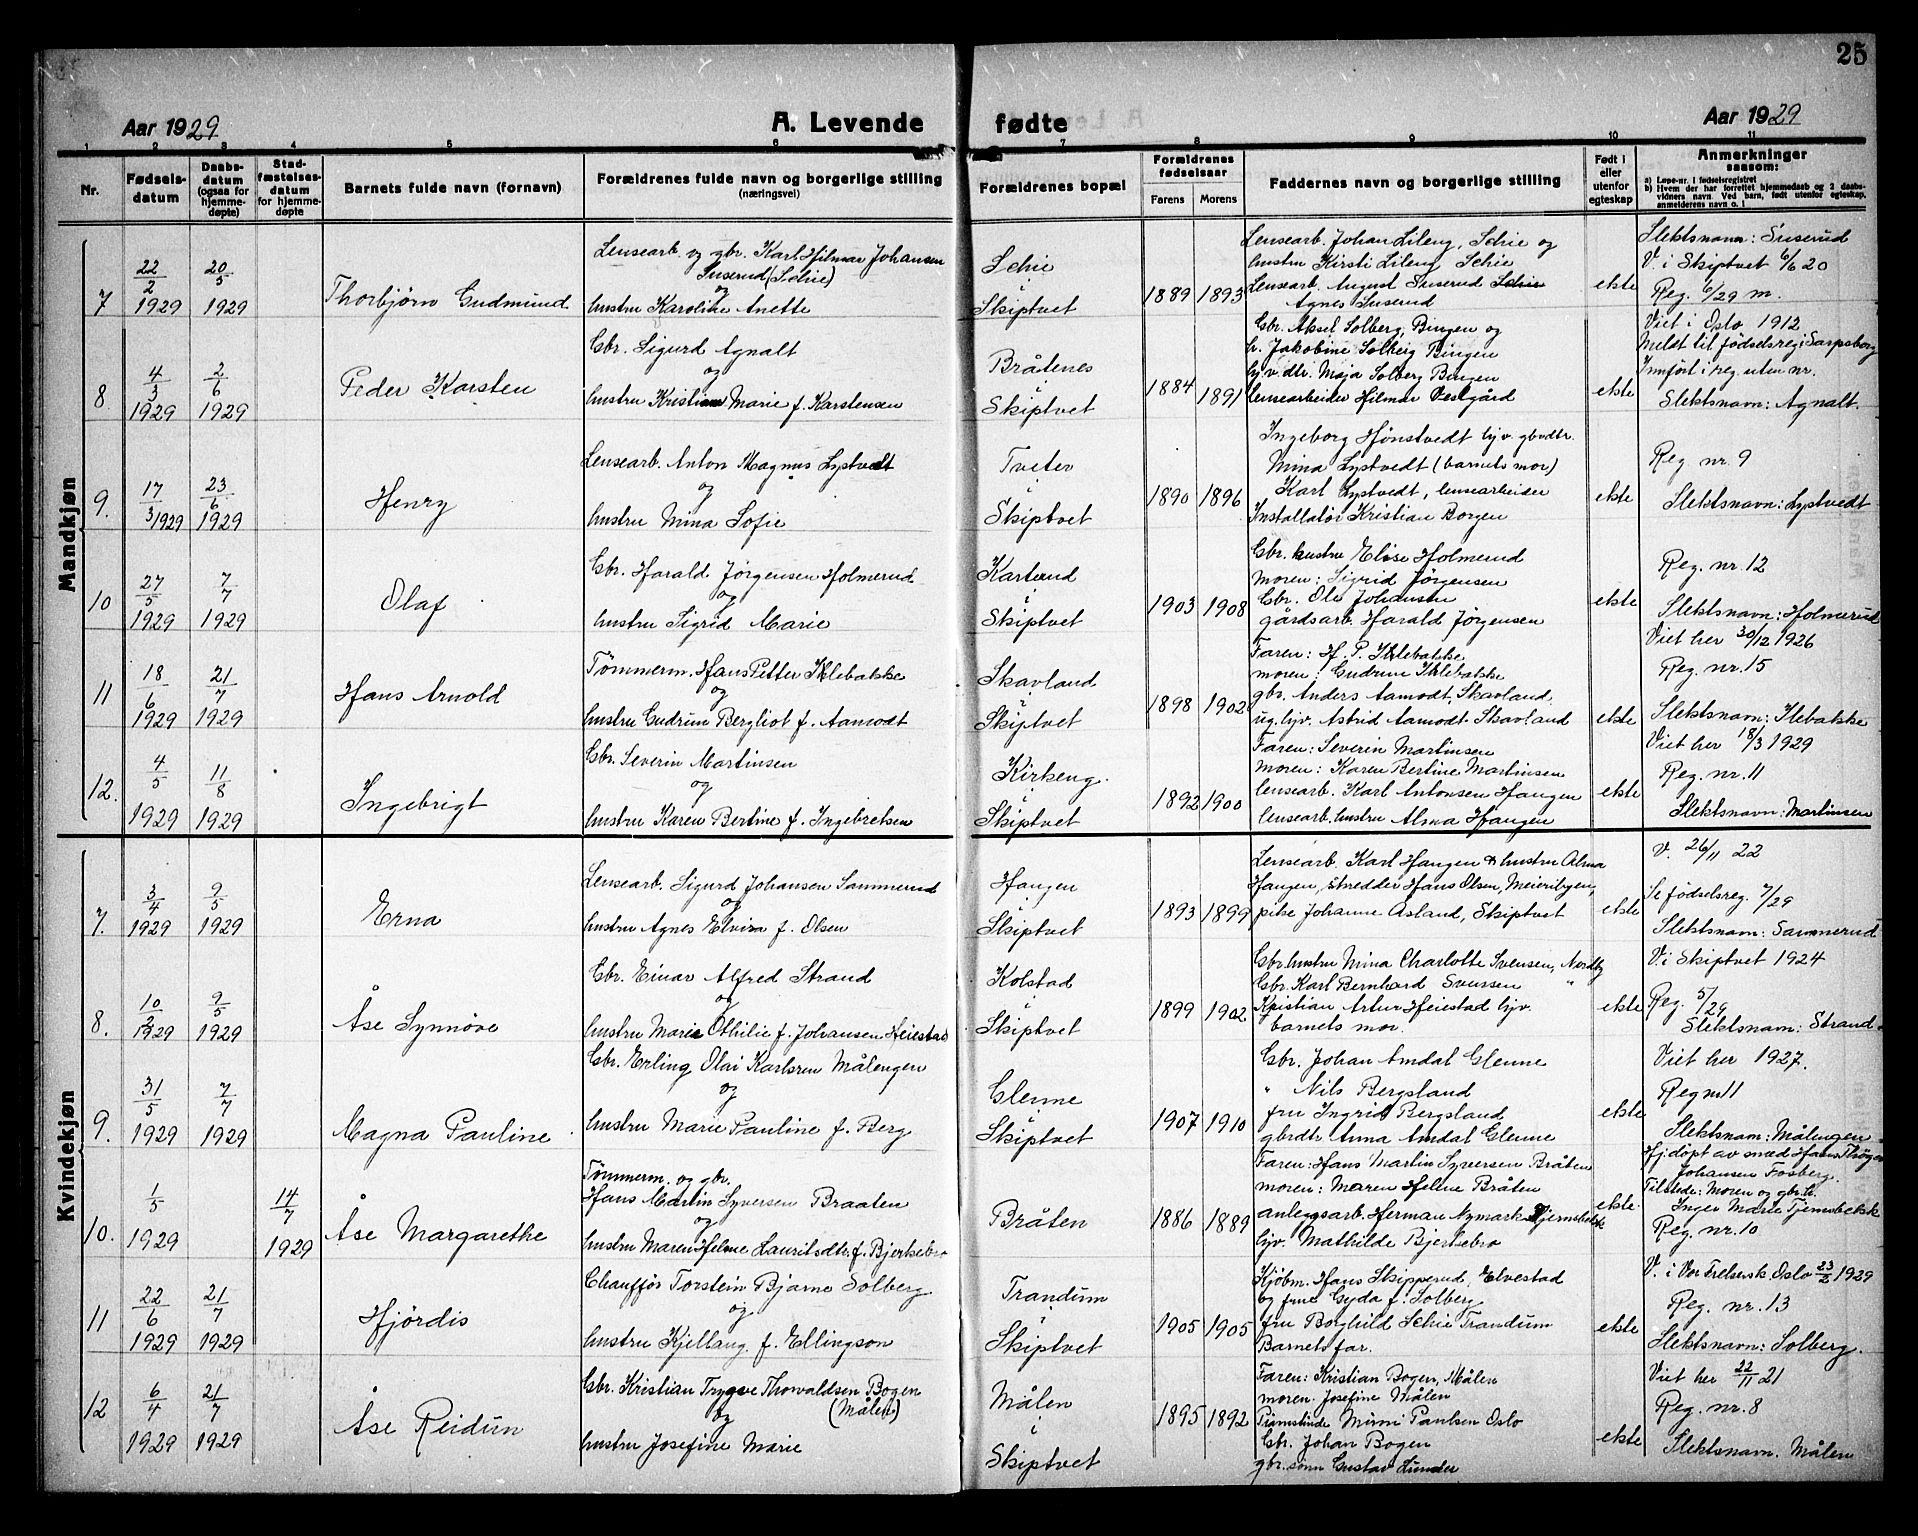 25
Aar 1929
A. Levende
fødte
Aar 1929
1 2 3 4 5 6 7 8 9 10 11
Nr.
Fødsels-
datum
Daabs-
datum
(ogsaa for
hjemme-
døpte)
Stad-
fæstelses-
datum
for hjemme-
døpte
Barnets fulde navn (fornavn)
Forældrenes fulde navn og borgerlige stilling
(næringsvei)
Forældrenes bopæl
Forældrenes
fødselsaar
Farens
Morens
Faddernes navn og borgerlige stilling
Født i
eller
utenfor
egteskap
Anmerkninger
saasom:
a) Løpe-nr. i fødselsregistret
b) Hvem der har forrettet hjemmedaab og 2 daabs-
vidners navn. Ved barn, født utenfor egteskap,
anmelderens navn o. l.
Mandkjøn
7
22/2
1929
20/5
1929
Thorbjørn Gudmund
Lensearb. og gbr. Karl Hilmar Johansen
Suserud (Schie)
og
hustru Karoline Anette
Schie
Skiptvet
1889
1893
Lensearb. Johan Lileng, Schie og
hustru Kirsti Lileng, Schie
Lensearb. August Suserud Schie
Agnes Suserud
ekte
Slektsnavn: Suserud
V. i Skiptvet 6/6 20
Reg. 6/29 m.
8
4/3
1929
2/6
1929
Peder Karsten
Gbr. Sigurd Agnalt
og
hustru Kristiane Marie f. Karstensen
Bråtenes
i
Skiptvet
1884
1891
Gbr. Aksel Solberg, Bingen og
h. Jakobine Solberg Bingen
hj.v. dtr. Maja Solberg Bingen
lensearbeider Hilmar Vestgård
ekte
Viet i Oslo 1912
Meldt til fødselsreg i Sarpsborg
Innført i reg. uten nr.
Slektsnavn: Agnalt.
9.
17/3 1929
23/6
1929
Henry
Lensearb. Anton Magnus Lystvedt
og
hustru Mina Sofie
Tveter
i
Skiptvet
1890
1896
Ingeborg Hønstvedt hjv. gbrdtr.
Mina Lystvedt (barnets mor)
Karl Lystvedt, lensearbeider
Installatør Kristian Borgen
ekte
Reg nr. 9
Slektsnavn: Lystvedt
10
27/5
1929
7/7
1929
Olaf
Gbr. Harald Jørgensen Holmerud
og
hustru Sigrid Marie
Karlsrud
i
Skiptvet
1903
1908
Gbr. hustru Elise Holmerud
moren: Sigrid Jørgensen
Gbr. Ole Johansen
gårdsarb. Harald Jørgensen
ekte
Reg. nr. 12
Slektsnavn: Holmerud
Viet her 30/12 1926
11
18/6
1929
21/7
1929
Hans Arnold
Tømmerm. Hans Petter Iklebakke
og
hustru Gudrun Bergliot f. Aamodt
Skavland
i
Skiptvet
1898
1902
Faren: H. P. Iklebakke
moren: Gudrun Iklebakke
gbr. Anders Aamodt, Skavland,
ug. hjv. Astrid Aamodt Skavland
ekte
Reg. nr. 15
Slektsnavn: Ilebakke
Viet her 18/3 1929
12.
4/5
1929
11/8
1929
Ingebrigt
Gbr. Severin Martinsen
og
hustru Karen Bertine f. Ingebretsen
Kirkeng.
i
Skiptvet
1892
1900
Faren: Severin Martinsen
moren: Karen Bertine Martinsen
lensearb. Karl Antonsen Haugen
lensearb. hustru Alma Haugen
ekte
Reg. nr. 11
Slektsnavn: Martinsen
Kvindekjøn
7.
3/4
1929
9/5
1929
Erna
Lensearb. Sigurd Johansen Sammerud
og
hustru Agnes Elvira f. Olsen
Haugen
i
Skiptvet
1893
1899
Lensearb. Karl Haugen & hustru Alma
Haugen, skredder Hans Olsen, Meieribyen,
pike Johanne Åsland, Skiptvet
ekte
V. 26/11 22
Se fødselsreg. 7/29
Slektsnavn: Sammerud
8.
10/2
1929
9/5
1929
Åse Synnøve
Gbr. Einar Alfred Strand
og
hustru Marie Othilie f. Johansen Heiestad
Kolstad
i
Skiptvet
1899
1902
Gbr. hustru Mina Charlotte Svensen, Nordby
Gbr. Karl Bernhard Svensen "
Kristian Artur Heiestad hjv.
barnets mor.
ekte
V. i Skiptvet 1924
Reg. 5/29
Slektsnavn: Strand
9.
31/5
1929
7/7
1929
Magna Pauline
Gbr. Erling Olai Karlsren Målengen
og
hustru Marie Pauline f. Berg
Glenne
i
Skiptvet
1907
1910
Gbr. Johan Amdal Glenne
" Nils Bergsland
fru Ingrid Bergsland
gbrdtr Anna Amdal Glenne
ekte
Viet her 1927.
Reg nr 11
Slektsnavn: Målengen
10.
1/5
1929
14/7
1929
Åse Margarethe
Tømmerm. og gbr.
Hans Martin Syversen Braaten
og
hustru Maren Helene Lauritsdtr. f. Bjerkebro
Bråten
1886
1889
Faren: Hans Martin Syversen Bråten
moren: Maren Helene Bråten
anleggsarb. Herman Nymark Tjernsbekk
hjv. Mathilde Bjerkebro
ekte.
Hj.døpt av smed Hans Thøger
Johansen Fosberg.
Tilstede: Moren og gbr. h.
Inger Marie Tjernsbekk
Reg. nr. 10
11
22/6
1929
21/7
1929
Hjørdis
Chauffør Torstein Bjarne Solberg
og
hustru Kjellaug f. Ellingson
Trandum
i
Skiptvet
1905
1905
Kjøbm. Hans Skipperud, Elvestad
og frue Gyda f. Solberg
fru Borghild Schie Trandum
Barnets far.
ekte
V. i Vor Frelsersk. Oslo 23/2 1929
Reg. nr. 13
Slektsnavn: Solberg.
12
6/4
1929
21/7
1929
Åse Reidun
Gbr. Kristian Trygve Thorvaldsen Bogen
(Målen)
og
hustru Josefine Marie
Målen
i
Skiptvet
1895
1892
Faren: Kristian Bogen, Målen
moren: Josefine Målen
Mimi Paulsen Oslo
Gbr. Johan Bogen
gbr.sønn Gustav Lunder
ekte
Viet her 22/11 21
Reg. nr. 8
Slektsnavn. Målen